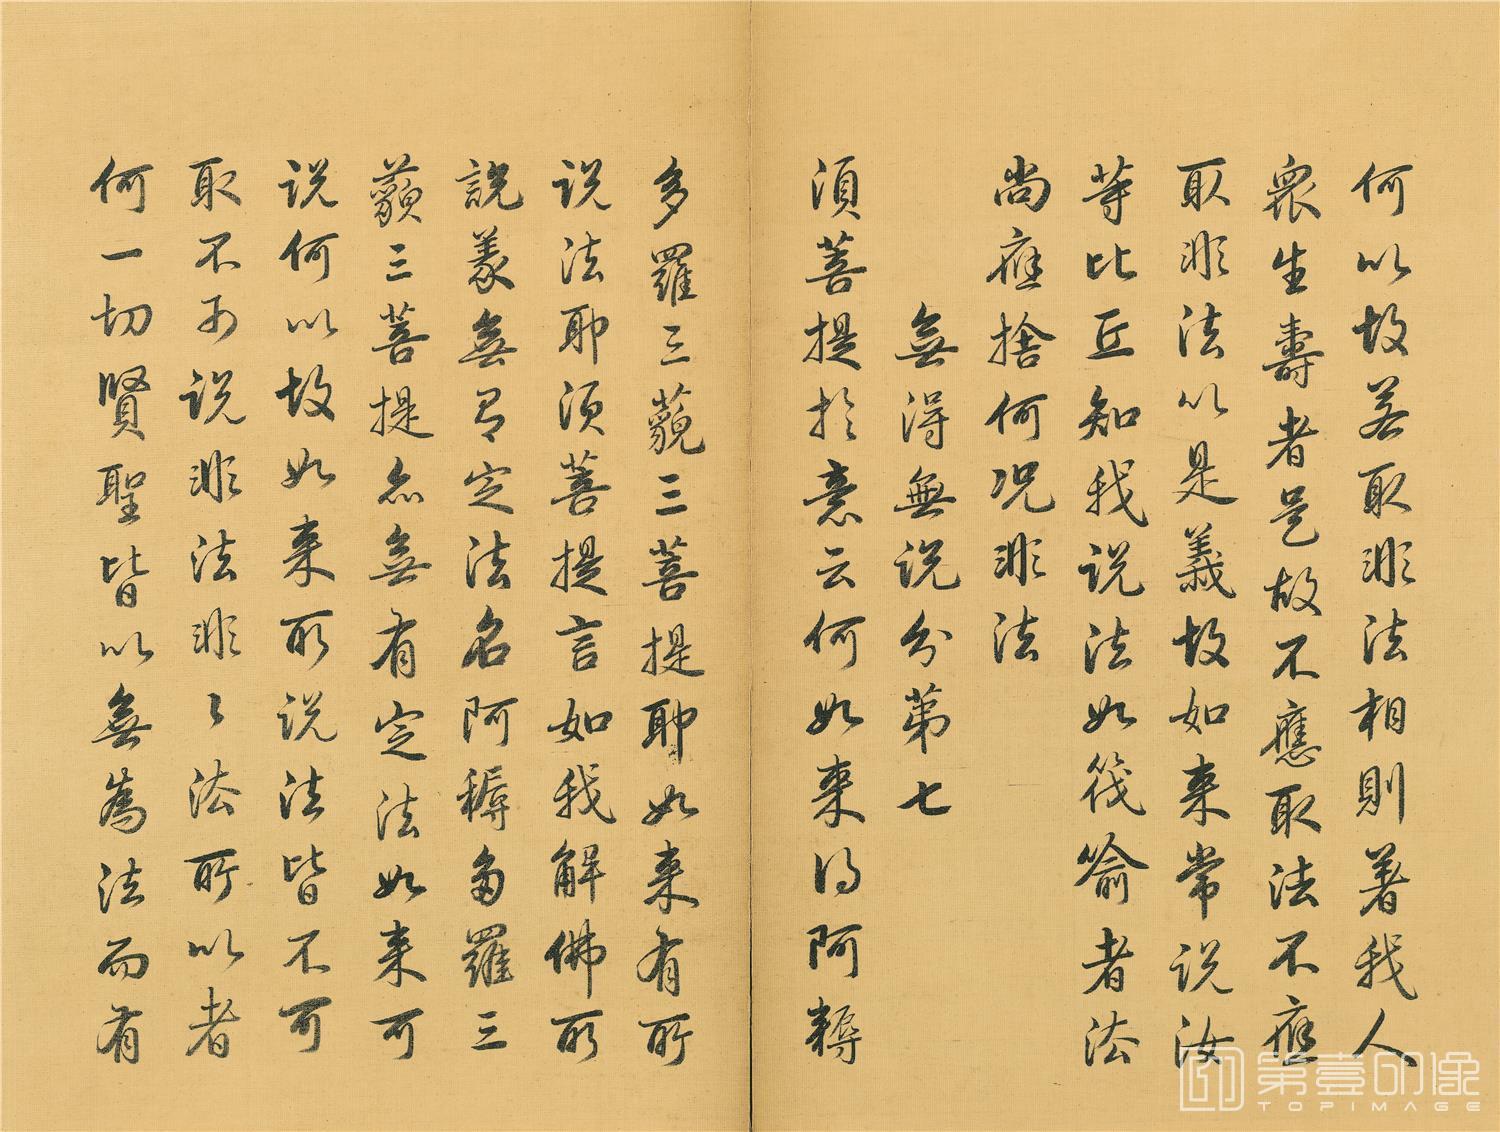 何以故若取非法相則著我人
衆生壽者是故不應取法不應
取非法以是義故如来常说汝
等比丘知我说法如筏喻者法
尚應捨何况非法
無得無说分第七
須菩提於意云何如来得阿耨
多羅三藐三菩提耶如来有所
说法耶須菩提言如我解佛所
説義無有定法名阿耨多羅三
藐三菩提亦無有定法如来可
说何以故如来所说法皆不可
取不可说非法非〻法所以者
何一切賢聖皆以無為法而有
第壹印像
TOPIMAGE